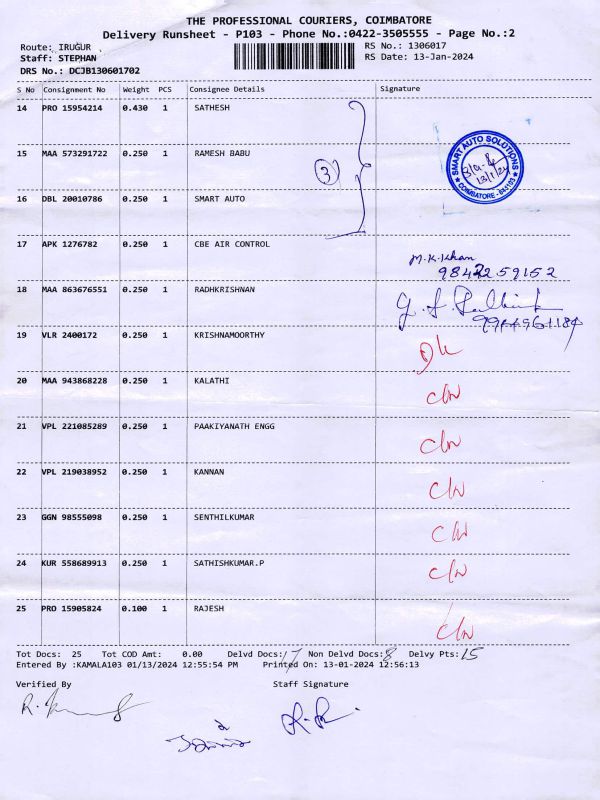 THE PROFESSIONAL COURIERS, COIMBATORE
Delivery Runsheet - P103 - Phone No.:0422-3505555 - Page No.:2
Route: IRUGUR RS No.: 1306017
Staff: STEPHAN RS Date: 13-Jan-2024
DRS No.: DCJB130601702
S No Consignment No Weight PCS Consignee Details Signature
14 PRO 15954214 0.430 1 SATHESH
15 MAA 573291722 0.250 1 RAMESH BABU
3
SMART AUTO SOLUTIONS
13/1/24
COIMBATORE - 641103
16 DBL 20010786 0.250 1 SMART AUTO
17 APK 1276782 0.250 1 CBE AIR CONTROL
M.K.Khan
9842259152
18 MAA 863676551 0.250 1 RADHKRISHNAN
19 VLR 2400172 0.250 1 KRISHNAMOORTHY
20 MAA 943868228 0.250 1 KALATHI
21 VPL 221085289 0.250 1 PAAKIYANATH ENGG
22 VPL 219038952 0.250 1 KANNAN
23 GGN 98555098 0.250 1 SENTHILKUMAR
24 KUR 558689913 0.250 1 SATHISHKUMAR.P
25 PRO 15905824 0.100 1 RAJESH
Tot Docs: 25 Tot COD Amt: 0.00 Delvd Docs: 17 Non Delvd Docs: 8 Delvy Pts: 15
Entered By :KAMALA103 01/13/2024 12:55:54 PM Printed On: 13-01-2024 12:56:13
Verified By Staff Signature